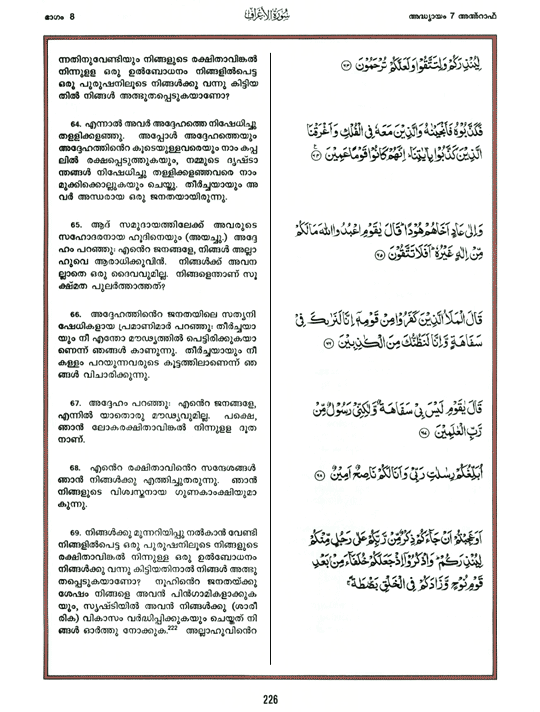 ഭാഗം 8
سُورَةُ الأَعْرَاف
അദ്ധ്യായം 7 അൽഅ്റാഫ്
ന്നതിനുവേണ്ടിയും നിങ്ങളുടെ രക്ഷിതാവിങ്കൽ
നിന്നുള്ള ഒരു ഉൽബോധനം നിങ്ങളിൽപെട്ട
ഒരു പുരുഷനിലൂടെ നിങ്ങൾക്കു വന്നു കിട്ടിയ
തിൽ നിങ്ങൾ അത്ഭുതപ്പെടുകയാണോ?
64. എന്നാൽ അവർ അദ്ദേഹത്തെ നിഷേധിച്ചു
തള്ളിക്കളഞ്ഞു. അപ്പോൾ അദ്ദേഹത്തെയും
അദ്ദേഹത്തിൻെറ കൂടെയുള്ളവരെയും നാം കപ്പ
ലിൽ രക്ഷപ്പെടുത്തുകയും, നമ്മുടെ ദൃഷ്ടാ
ന്തങ്ങൾ നിഷേധിച്ചു തള്ളിക്കളഞ്ഞവരെ നാം
മുക്കിക്കൊല്ലുകയും ചെയ്തു. തീർച്ചയായും അ
വർ അന്ധരായ ഒരു ജനതയായിരുന്നു.
65. ആദ് സമുദായത്തിലേക്ക് അവരുടെ
സഹോദരനായ ഹൂദിനെയും (അയച്ചു.) അദ്ദേ
ഹം പറഞ്ഞു: എൻെറ ജനങ്ങളേ, നിങ്ങൾ അല്ലാ
ഹുവെ ആരാധിക്കുവിൻ. നിങ്ങൾക്ക് അവന
ല്ലാതെ ഒരു ദൈവവുമില്ല. നിങ്ങളെന്താണ് സൂ
ക്ഷ്മത പുലർത്താത്തത്?
66. അദ്ദേഹത്തിൻെറ ജനതയിലെ സത്യനി
ഷേധികളായ പ്രമാണിമാർ പറഞ്ഞു: തീർച്ചയാ
യും നീ എന്തോ മൗഢ്യത്തിൽ പെട്ടിരിക്കുകയാ
ണെന്ന് ഞങ്ങൾ കാണുന്നു. തീർച്ചയായും നീ
കള്ളം പറയുന്നവരുടെ കൂട്ടത്തിലാണെന്ന് ഞ
ങ്ങൾ വിചാരിക്കുന്നു.
67. അദ്ദേഹം പറഞ്ഞു: എൻെറ ജനങ്ങളേ,
എന്നിൽ യാതൊരു മൗഢ്യവുമില്ല. പക്ഷെ,
ഞാൻ ലോകരക്ഷിതാവിങ്കൽ നിന്നുള്ള ദൂത
നാണ്.
68. എൻെറ രക്ഷിതാവിൻെറ സന്ദേശങ്ങൾ
ഞാൻ നിങ്ങൾക്കു എത്തിച്ചുതരുന്നു. ഞാൻ
നിങ്ങളുടെ വിശ്വസ്തനായ ഗുണകാംക്ഷിയുമാ
കുന്നു.
69. നിങ്ങൾക്കു മുന്നറിയിപ്പു നൽകാൻ വേണ്ടി
നിങ്ങളിൽപെട്ട ഒരു പുരുഷനിലൂടെ നിങ്ങളുടെ
രക്ഷിതാവിങ്കൽ നിന്നുള്ള ഒരു ഉൽബോധനം
നിങ്ങൾക്കു വന്നു കിട്ടിയതിനാൽ നിങ്ങൾ അത്ഭു
തപ്പെടുകയാണോ? നൂഹിൻെറ ജനതയ്ക്കു
ശേഷം നിങ്ങളെ അവൻ പിൻഗാമികളാക്കുക
യും, സൃഷ്ടിയിൽ അവൻ നിങ്ങൾക്കു (ശാരീ
രിക) വികാസം വർദ്ധിപ്പിക്കുകയും ചെയ്തത് നി
ങ്ങൾ ഓർത്തു നോക്കുക.²²² അല്ലാഹുവിൻെറ
لِيُنْذِرَكُمْ وَلِتَتَّقُوا وَلَعَلَّكُمْ تُرْحَمُونَ ﴿٦٣﴾
فَكَذَّبُوهُ فَأَنْجَيْنَاهُ وَالَّذِينَ مَعَهُ فِي الْفُلْكِ وَأَغْرَقْنَا
الَّذِينَ كَذَّبُوا بِآيَاتِنَا إِنَّهُمْ كَانُوا قَوْمًا عَمِينَ ﴿٦٤﴾
وَإِلَىٰ عَادٍ أَخَاهُمْ هُودًا قَالَ يَا قَوْمِ اعْبُدُوا اللَّهَ مَا لَكُمْ
مِنْ إِلَٰهٍ غَيْرُهُ أَفَلَا تَتَّقُونَ ﴿٦٥﴾
قَالَ الْمَلَأُ الَّذِينَ كَفَرُوا مِنْ قَوْمِهِ إِنَّا لَنَرَاكَ فِي
سَفَاهَةٍ وَإِنَّا لَنَظُنُّكَ مِنَ الْكَاذِبِينَ ﴿٦٦﴾
قَالَ يَا قَوْمِ لَيْسَ بِي سَفَاهَةٌ وَلَٰكِنِّي رَسُولٌ مِنْ
رَبِّ الْعَالَمِينَ ﴿٦٧﴾
أُبَلِّغُكُمْ رِسَالَاتِ رَبِّي وَأَنَا لَكُمْ نَاصِحٌ أَمِينٌ ﴿٦٨﴾
أَوَعَجِبْتُمْ أَنْ جَاءَكُمْ ذِكْرٌ مِنْ رَبِّكُمْ عَلَىٰ رَجُلٍ مِنْكُمْ
لِيُنْذِرَكُمْ وَاذْكُرُوا إِذْ جَعَلَكُمْ خُلَفَاءَ مِنْ بَعْدِ
قَوْمِ نُوحٍ وَزَادَكُمْ فِي الْخَلْقِ بَصْطَةً
226